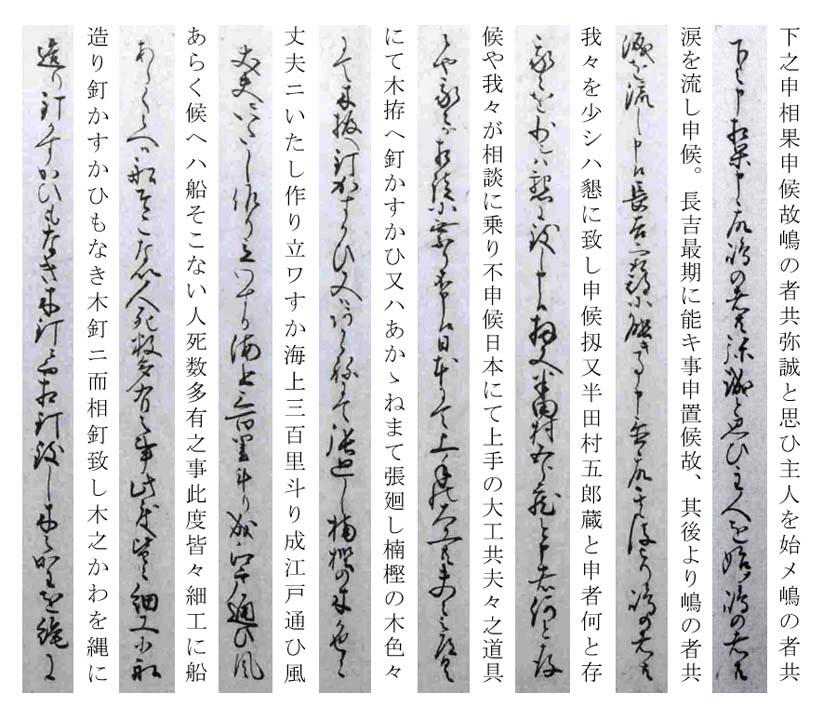 下之申相果申候故嶋の者共弥誠と思ひ主人を始メ嶋の者共
涙を流し申候。長吉最期に能キ事申置候故、其後より嶋の者共
我々を少シハ懇に致し申候扨又半田村五郎蔵と申者何と存
候や我々が相談に乗り不申候日本にて上手の大工共夫々之道具
にて木拵へ釘かすかひ又ハあかゝねまて張廻し楠樫の木色々
丈夫ニいたし作り立ワすか海上三百里斗り成江戸通ひ風
あらく候へハ船そこない人死数多有之事此度皆々細工に船
造り釘かすかひもなき木釘ニ而相釘致し木之かわを縄に